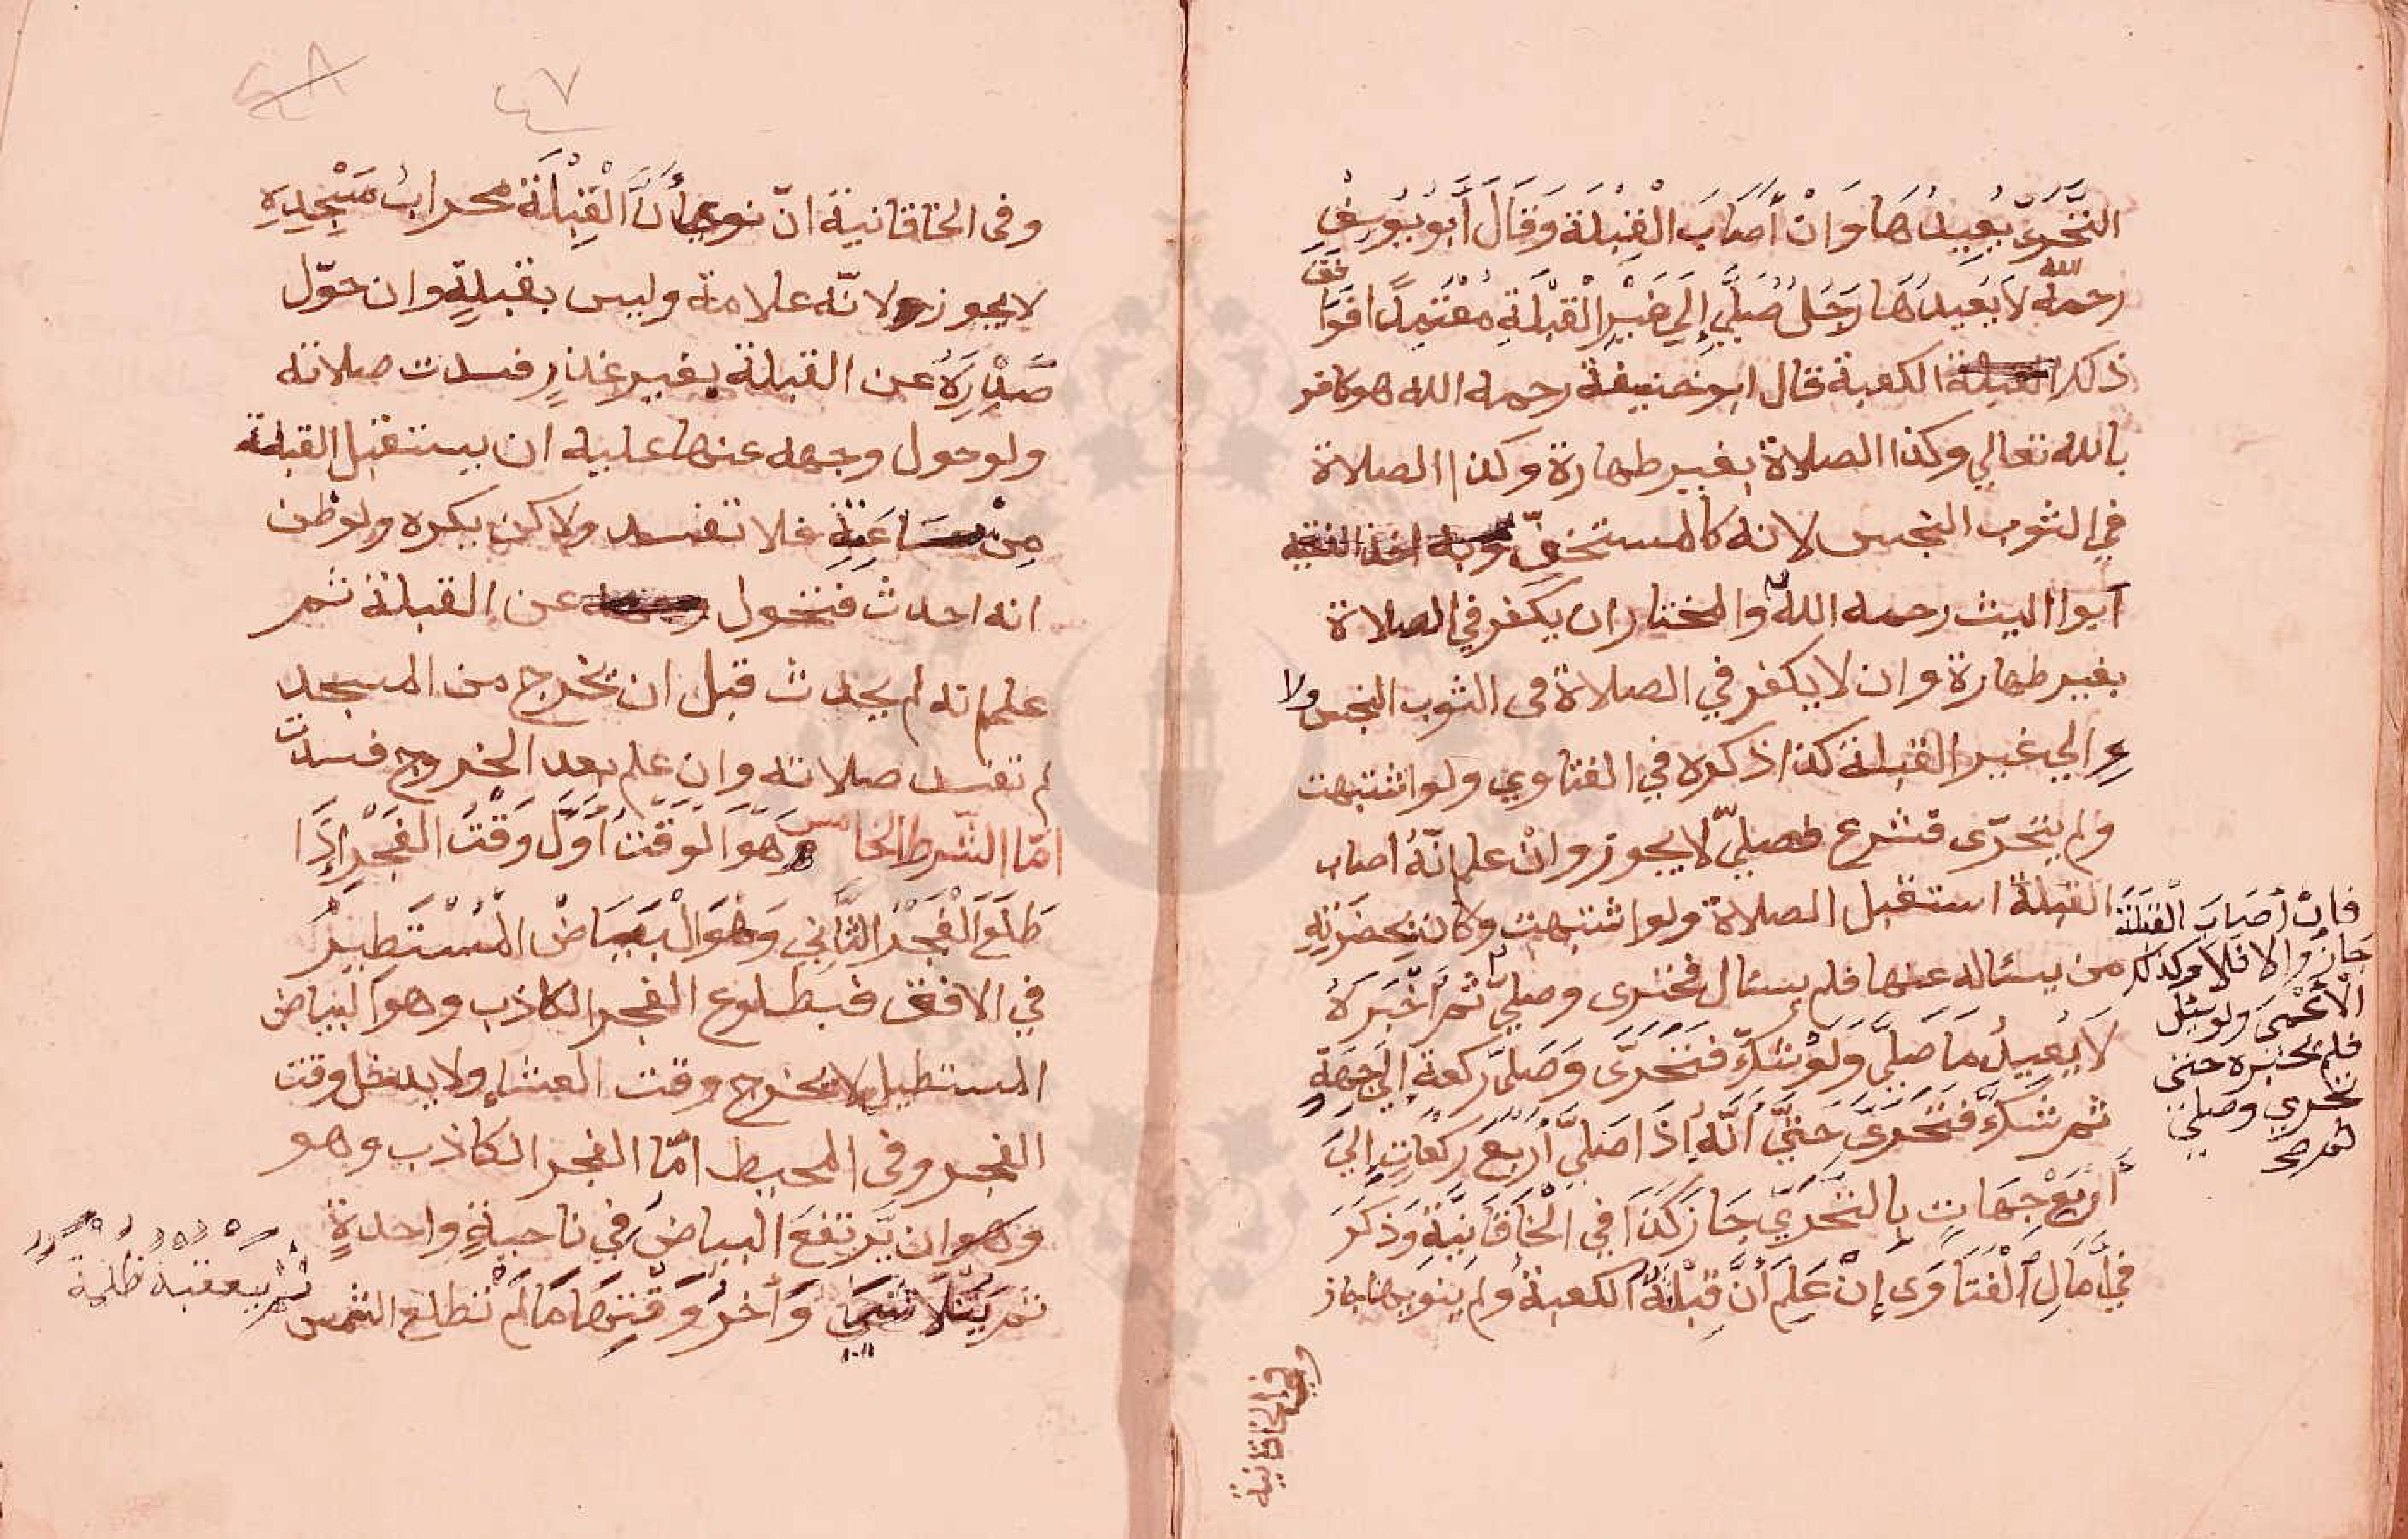 التَّحَرِّي يُعِيدُهَا وَانْ أَصَابَ الْقِبْلَةَ وَقَالَ أَبُو يُوسِفَ
رحمه الله لَا يُعِيدُهَا رَجُلٌ صَلَّى إِلَي غَيْرِ الْقِبْلَةِ مُتَعَمِّدًا فَوَافَقَ
ذلك الكعبة قال ابو حنيفة رحمه الله هو كافر
بالله تعالي وكذا الصلاة بغير طهارة وكذا الصلاة
في الثوب النجس لانه كالمستخفّ وبه اخذ الفقيه
ابوا اليث رحمه الله والمختار ان يكفر في الصلاة
بغير طهارة وان لا يكفر في الصلاة فى الثوب النجس ولا
الي غير القبلة كذا ذكره في الفتاوي ولو اشتبهت
ولم يتحرّى فشرع فصليّ لا يجوز وانْ علم انّهُ اصاب
القبلة استقبل الصلاة ولو اشتبهت وكان بِحضرَتِهِ
من يسئاله عنها فلم يسئال فتحرى وصليّ ثمّ اخْبَرَهُ
لَا يُعِيدُ مَا صَلَّي وَلَوْ شَكَّ فَتَحَرَّى وَصَلَّى ركعة إِلَي جِهَةٍ
ثم شَكَّ فَتَحَرَّى حَتَّي أَنَّهُ إذَا صَلَّي أَرْبَعَ رَكَعَاتٍ إِلَيَ
أَرْبَعِ جِهَاتٍ بِالتَّحَرِّي جَازَ كَذَا فِي الْخَاقَانِيَّةِ وَذَكَرَ
فِي أَمَالِ الْفَتَاوَى إِنْ عَلِمَ أَنَّ قِبْلَتَهُ الكعبة ولم ينوِيها جاز
فانْ أصَابَ الْقِبْلَةَ
جَازَ والا فلا وكذلك
الْأَعْمَى ولو سئل
فلم يخبره حتى
تحري وصلي
ثم صح
وفي الخاقانية
٤٧
٤٨
وفى الخاقانية انّ نوى أَنَّ الْقِبْلَةَ محرابُ مَسْجِدِهِ
لا يجوز لانّه علامة وليس بقبلةٍ وان حوّل
صَدْرَهُ عن القبلة بغير عذرٍ فسدت صلاته
ولو حول وجهه عنها عليه ان يستقبل القبلة
مِنْ سَاعَتِهِ فلا تفسد ولاكن يكره ولو ظن
انه احدث فتحول عن القبلة ثم
علم انه لم يحدث قبل ان يخرج من المسجد
لم تفسد صلاته وان علم بعد الخروج فسدت
امّا الشّرط الخامس وَهُوَ الْوَقْتُ أَوَّلُ وَقْتُ الْفَجْرِ إِذَا
طَلَعَ الْفَجْرُ الثَّانِي وَهُوَ الْبَيَاضُ الْمُسْتَطِيرُ
في الافق فبطلوع الفجر الكاذب وهو البياض
المستطيل لا يخرج وقت العشاءِ ولا يدخل وقت
الفجر وفى المحيط امّا الفجر الكاذب وهو
ان يَّرتفعَ البياضُ فِي ناحيةٍ واحدةٍ
ثم يَتَلَاشَى وَأخِرُ وَقْتِهَا مَا لَمْ تطلع الشمس
ثم يعقبه ظلمة